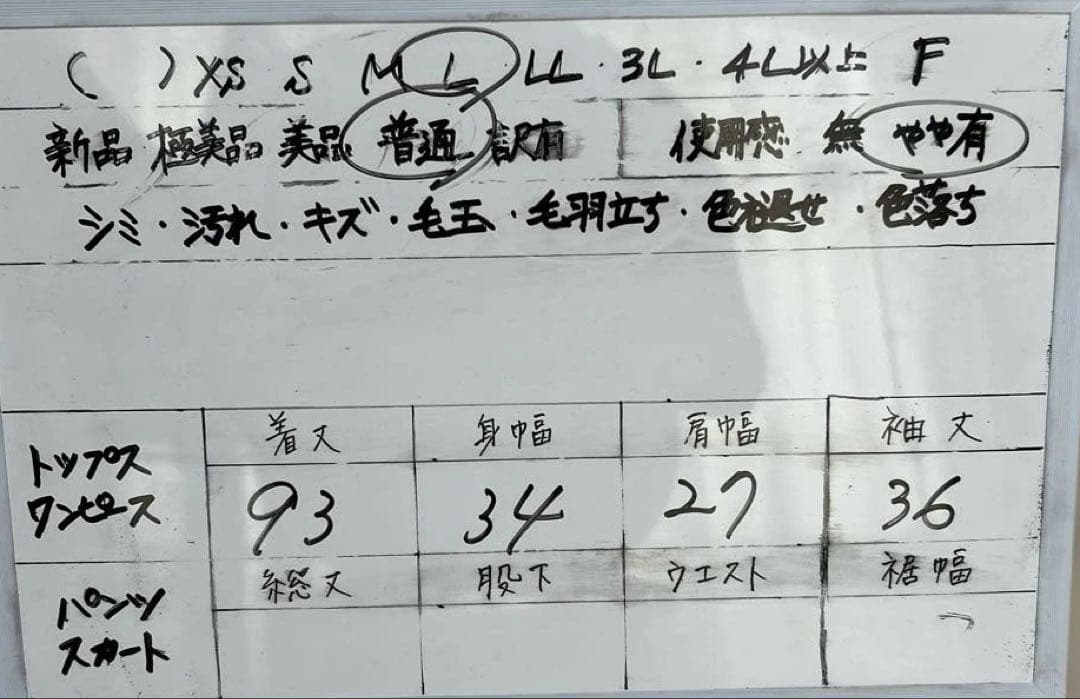 ( ) XS S M L LL・3L・4L以上 F
新品 極美品 美品 普通 訳有 使用感 無 やや有
シミ・汚れ・キズ・毛玉・毛羽立ち・色褪せ・色落ち
トップス
ワンピース
着丈 身幅 肩幅 袖丈
93 34 27 36
パンツ
スカート
総丈 股下 ウエスト 裾幅